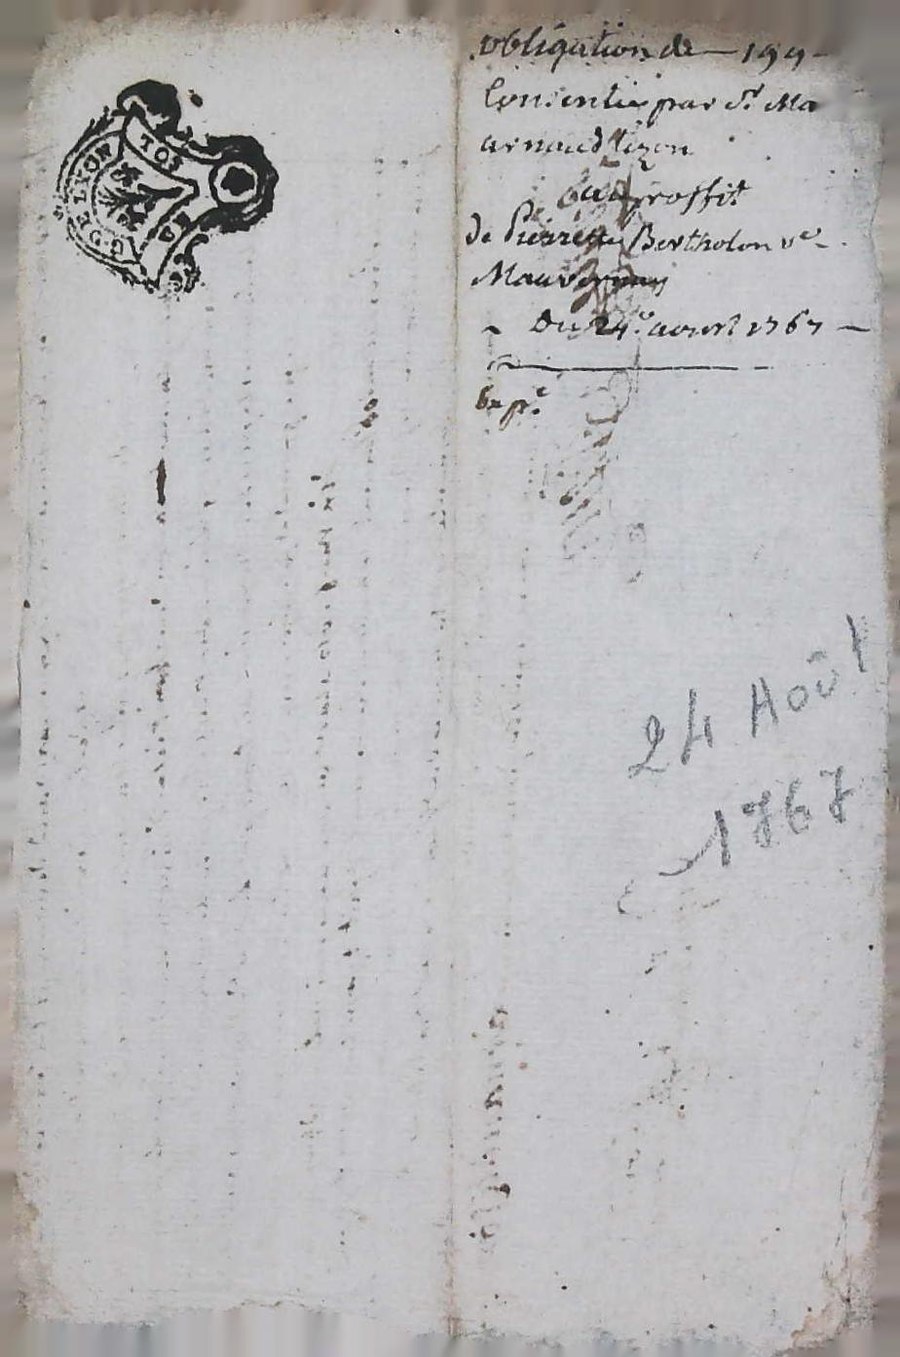 G. DE LYON
obligation de — 199 —
Consentie par Sr. Ma
arnaud
au proffit
de Pierrette Bertholon ve.
— Du 24e. aoust 1767 —
Exp.e
24 Août
1767